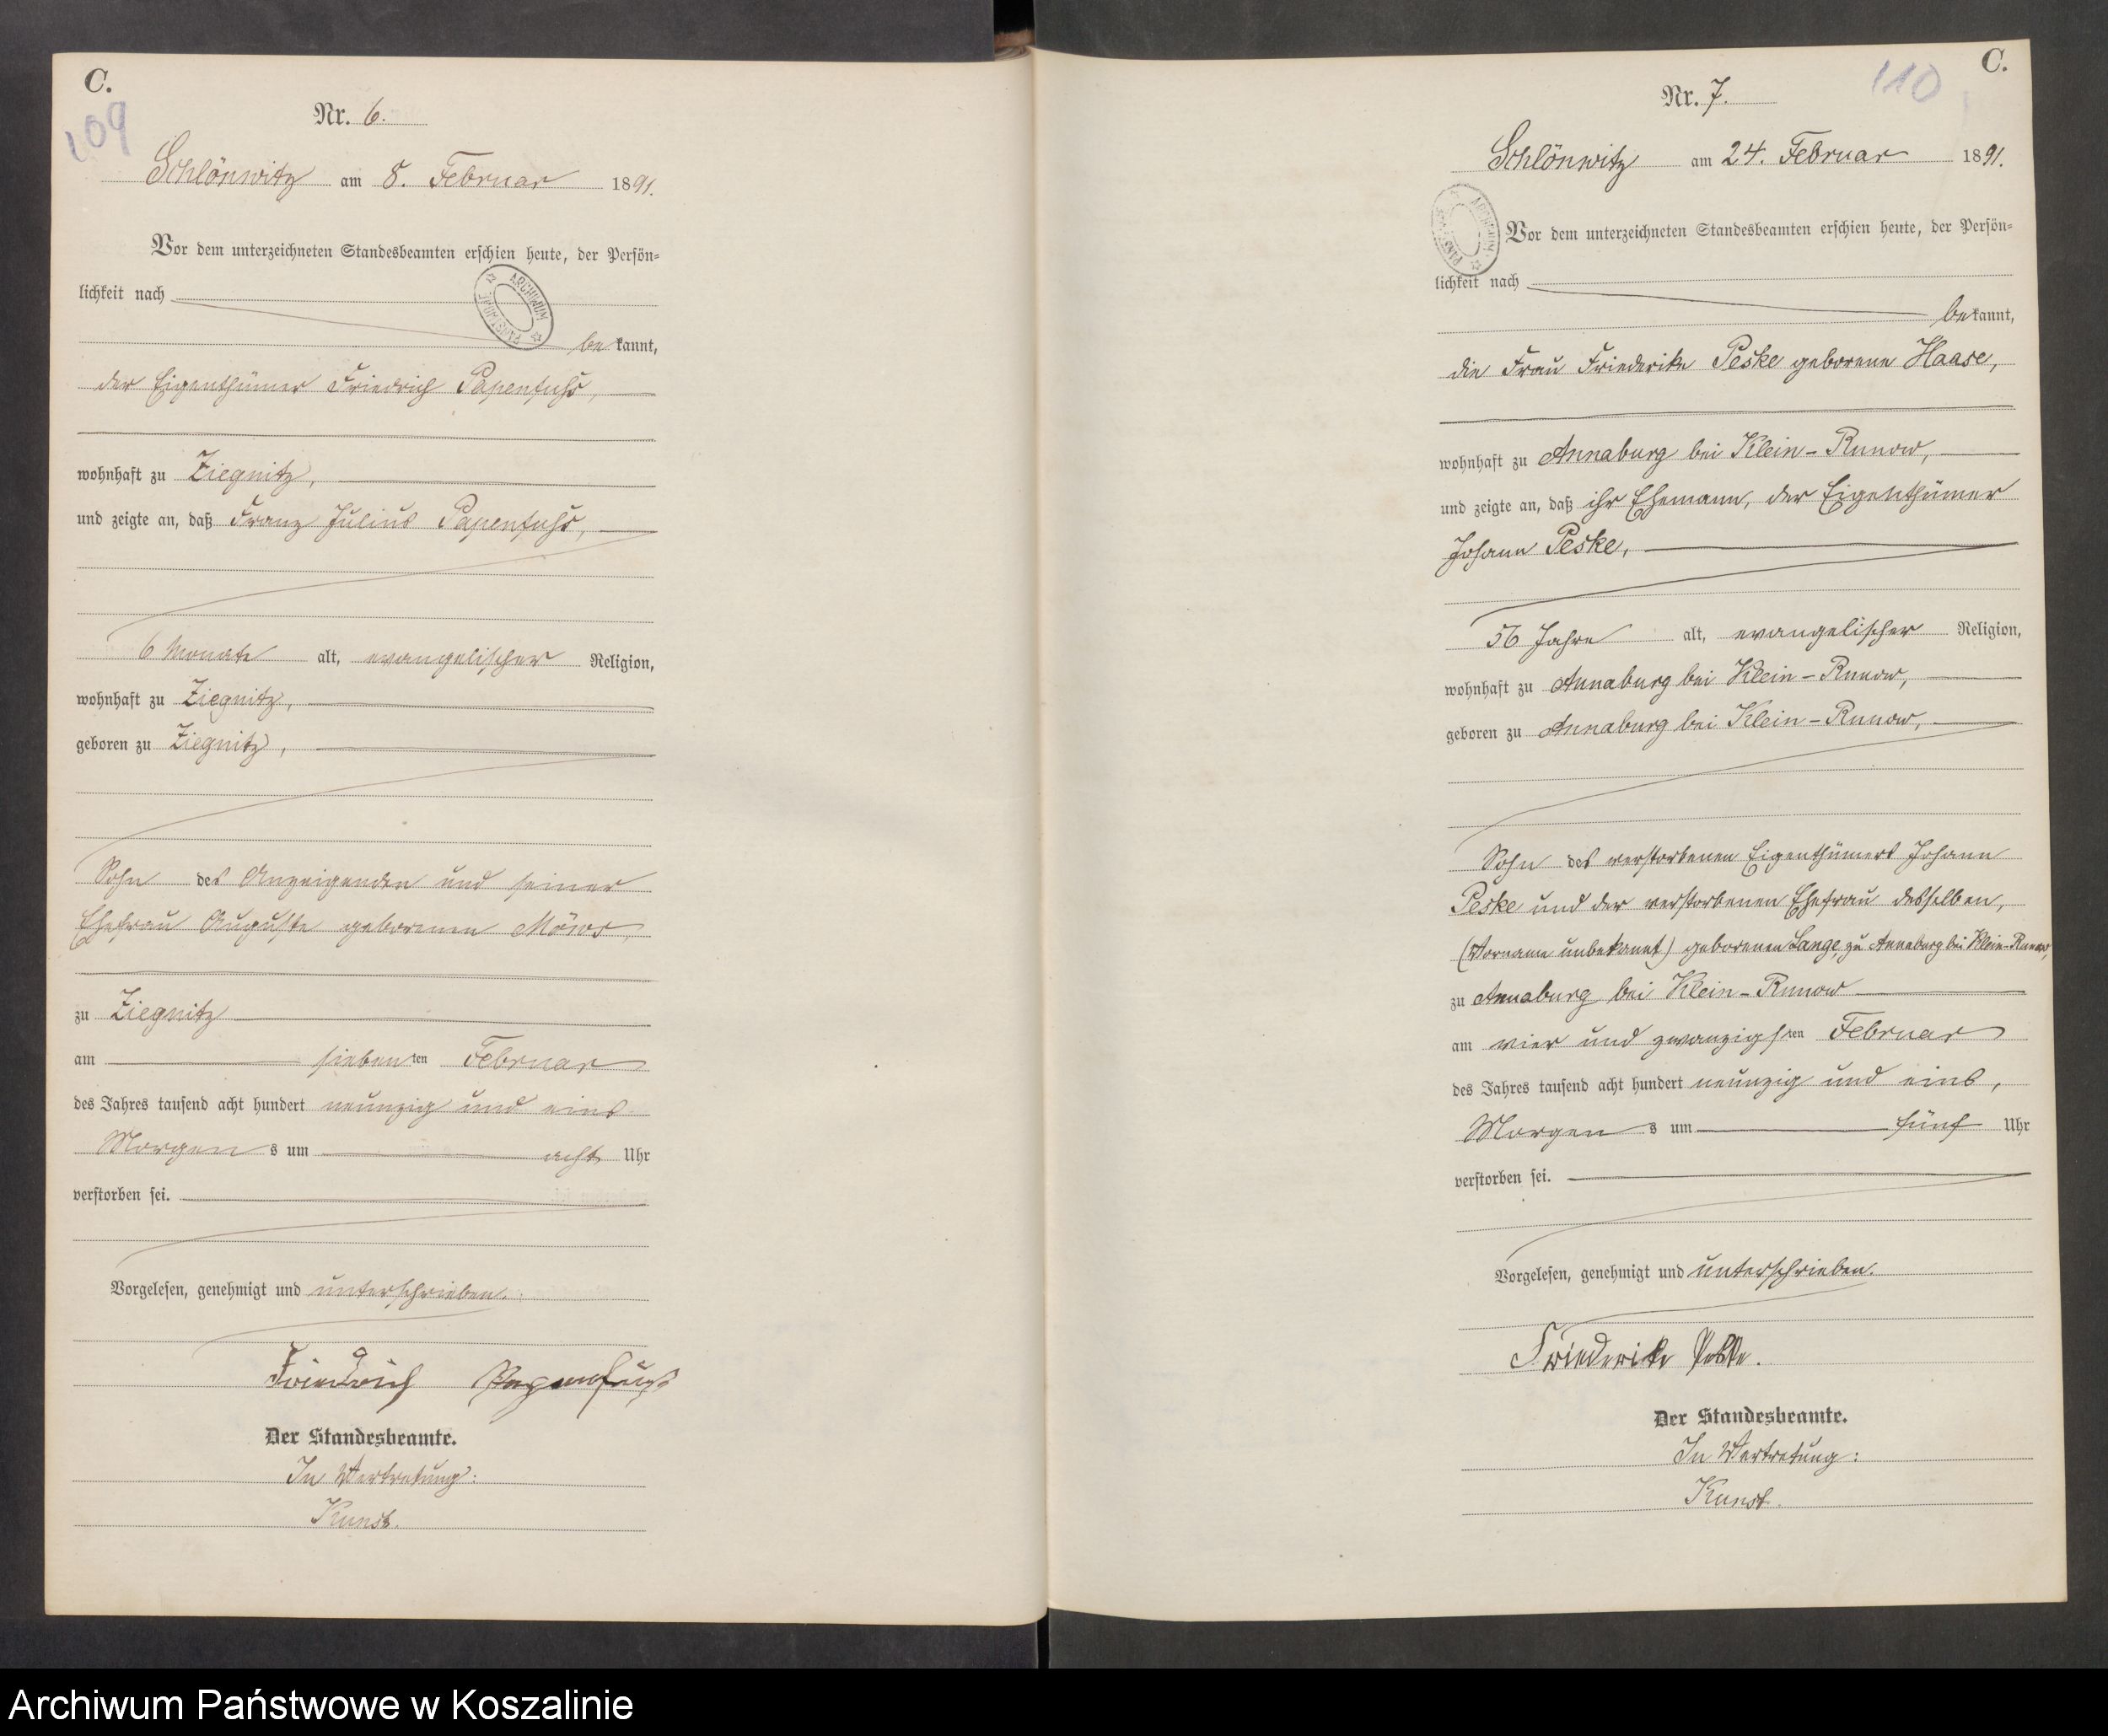 C.
109
Nr. 6.
Schlönwitz am 8. Februar 1891.
Vor dem unterzeichneten Standesbeamten erschien heute, der Persön-
lichkeit nach
bekannt,
der Eigenthümer Friedrich Papenfuhs,
wohnhaft zu Ziegnitz,
und zeigte an, daß Franz Julius Papenfuhs,
6 Monate alt, evangelischer Religion,
wohnhaft zu Ziegnitz,
geboren zu Ziegnitz,
Sohn des Anzeigenden und seiner
Ehefrau Auguste geborenen Möws,
zu Ziegnitz
am siebenten Februar
des Jahres tausend acht hundert neunzig und eins
Morgens um acht Uhr
verstorben sei.
Vorgelesen, genehmigt und unterschrieben.
Friedrich Papenfuß
Der Standesbeamte.
In Vertretung:
Kunst.
ARCHIWUM PAŃSTWOWE
C.
110
Nr. 7.
Schlönwitz am 24. Februar 1891.
Vor dem unterzeichneten Standesbeamten erschien heute, der Persön-
lichkeit nach
bekannt,
die Frau Friederike Peske geborene Haase,
wohnhaft zu Annaburg bei Klein-Runow,
und zeigte an, daß ihr Ehemann, der Eigenthümer
Johann Peske,
56 Jahre alt, evangelischer Religion,
wohnhaft zu Annaburg bei Klein-Runow,
geboren zu Annaburg bei Klein-Runow,
Sohn des verstorbenen Eigenthümers Johann
Peske und der verstorbenen Ehefrau desselben,
(Vorname unbekannt) geborenen Lange, zu Annaburg bei Klein-Runow,
zu Annaburg bei Klein-Runow
am vier und zwanzigsten Februar
des Jahres tausend acht hundert neunzig und eins,
Morgens um fünf Uhr
verstorben sei.
Vorgelesen, genehmigt und unterschrieben.
Friederike Peske.
Der Standesbeamte.
In Vertretung:
Kunst.
ARCHIWUM PAŃSTWOWE
Archiwum Państwowe w Koszalinie